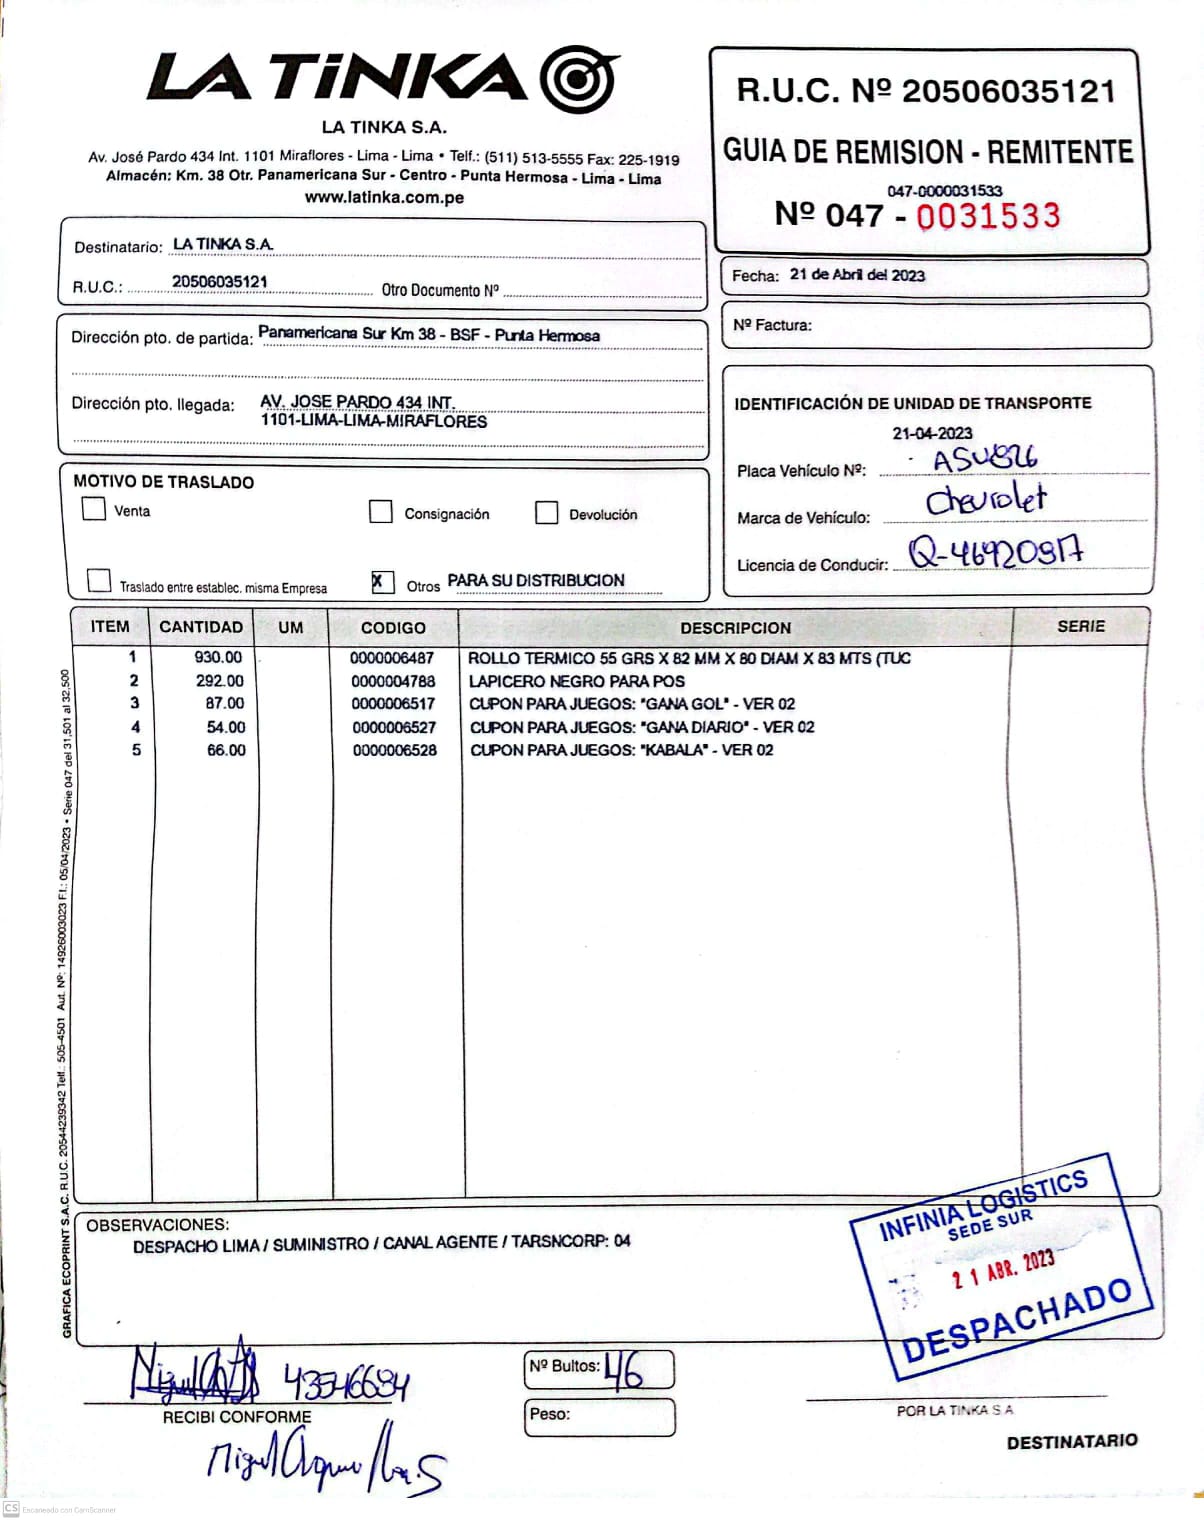 LA TiNKA
LA TINKA S.A.
Av. José Pardo 434 Int. 1101 Miraflores - Lima - Lima • Telf.: (511) 513-5555 Fax: 225-1919
Almacén: Km. 38 Otr. Panamericana Sur - Centro - Punta Hermosa - Lima - Lima
www.latinka.com.pe
R.U.C. Nº 20506035121
GUIA DE REMISION - REMITENTE
047-0000031533
Nº 047 - 0031533
Destinatario: LA TINKA S.A.
R.U.C.: 20506035121 Otro Documento Nº
Fecha: 21 de Abril del 2023
Nº Factura:
Dirección pto. de partida: Panamericana Sur Km 38 - BSF - Punta Hermosa
Dirección pto. llegada: AV. JOSE PARDO 434 INT.
1101-LIMA-LIMA-MIRAFLORES
IDENTIFICACIÓN DE UNIDAD DE TRANSPORTE
21-04-2023
Placa Vehículo Nº: ASU826
Marca de Vehículo: Chevrolet
Licencia de Conducir: Q-46920917
MOTIVO DE TRASLADO
Venta Consignación Devolución
Traslado entre establec. misma Empresa X Otros PARA SU DISTRIBUCION
ITEM CANTIDAD UM CODIGO DESCRIPCION SERIE
1 930.00 0000006487 ROLLO TERMICO 55 GRS X 82 MM X 80 DIAM X 83 MTS (TUC
2 292.00 0000004788 LAPICERO NEGRO PARA POS
3 87.00 0000006517 CUPON PARA JUEGOS: "GANA GOL" - VER 02
4 54.00 0000006527 CUPON PARA JUEGOS: "GANA DIARIO" - VER 02
5 66.00 0000006528 CUPON PARA JUEGOS: "KABALA" - VER 02
GRAFICA ECOPRINT S.A.C. R.U.C. 20544239342 Telf.: 505-4501 Aut. Nº: 14926003023 F.I.: 05/04/2023 • Serie 047 del 31,501 al 32,500
OBSERVACIONES:
DESPACHO LIMA / SUMINISTRO / CANAL AGENTE / TARSNCORP: 04
INFINIA LOGISTICS
SEDE SUR
21 ABR. 2023
DESPACHADO
Miguel 43546684
RECIBI CONFORME
Miguel
Nº Bultos: 46
Peso:
POR LA TINKA S.A
DESTINATARIO
CS Escaneado con CamScanner